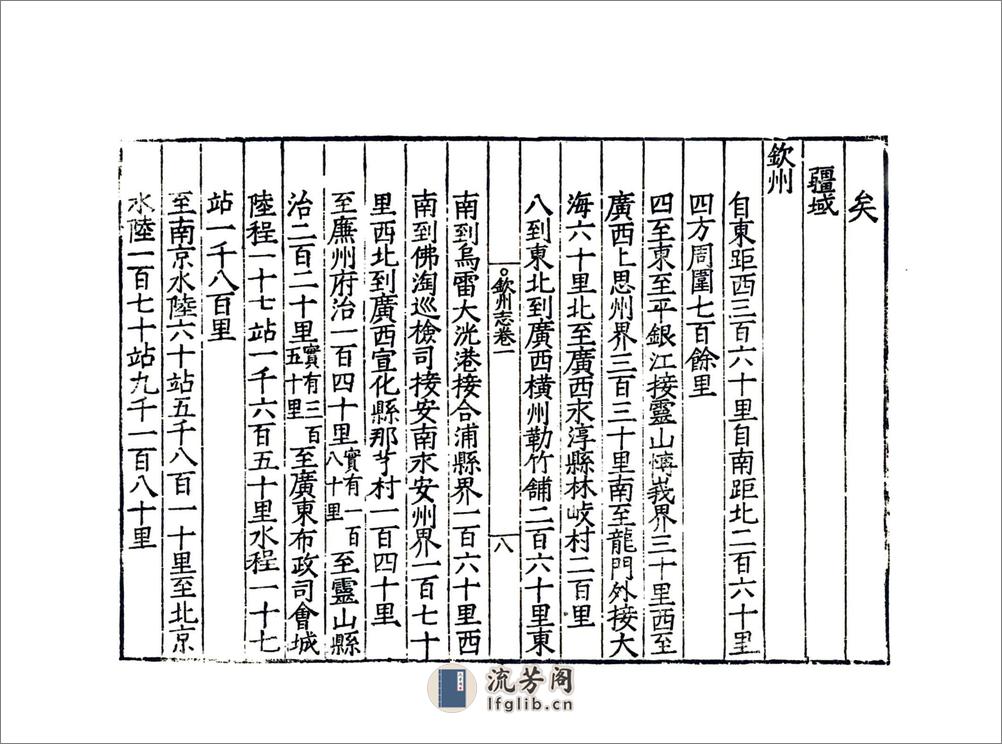 矣
疆域
欽州
自東距西三百六十里自南距北二百六十里
四方周圍七百餘里
四至東至平銀江接靈山博義界三十里西至
廣西上思州界三百三十里南至龍門外接大
海六十里北至廣西永淳縣林岐村二百里
八到東北到廣西橫州勒竹舖二百六十里東
欽州志卷一
八
南到烏雷大洸港接合浦縣界一百六十里西
南到佛淘巡檢司接安南永安州界一百七十
里西北到廣西宣化縣那芋村一百四十里
至廉州府治一百四十里實有一百八十里至靈山縣
治二百二十里實有三百五十里至廣東布政司會城
陸程一十七站一千六百五十里水程一十七
站一千八百里
至南京水陸六十站五千八百一十里至北京
水陸一百七十站九千一百八十里
流芳阁
lfglib.cn